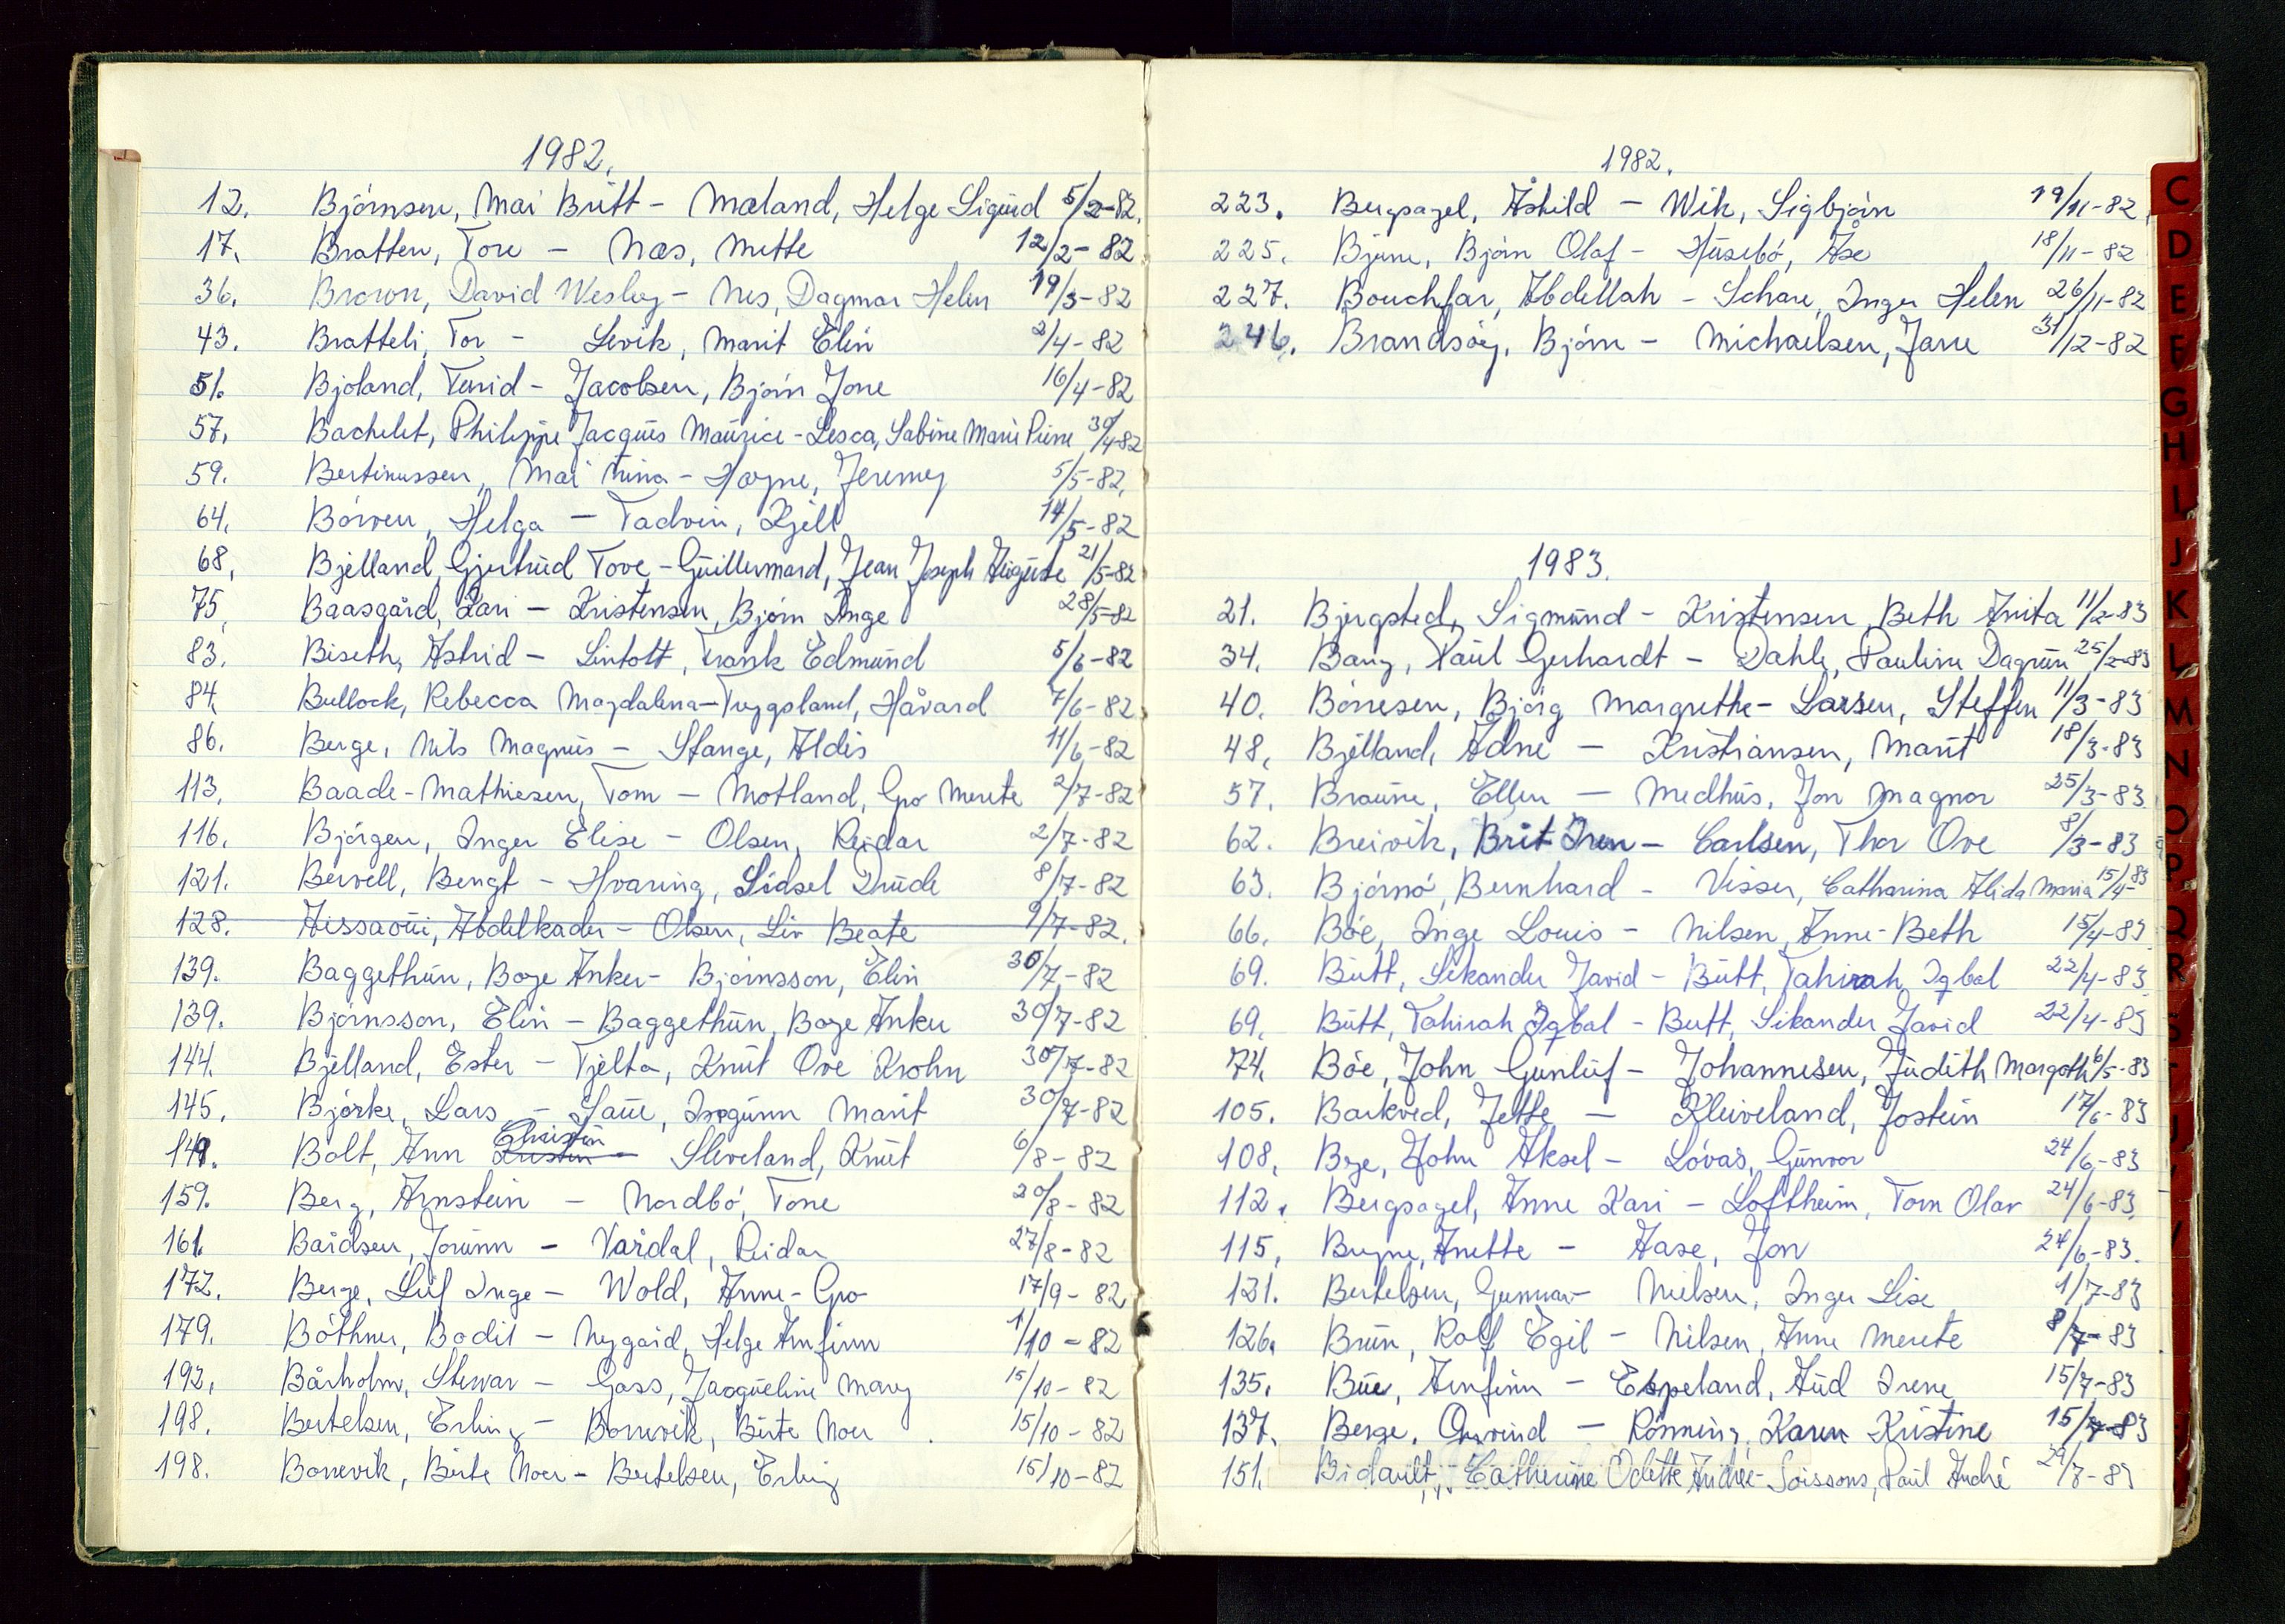 1982.
12. Björnsen, Mai Britt - Mæland, Helge Sigurd 5/2-82.
17. Bratten, Tore - Næs, Mette 12/2-82
36. Brown, David Wesley - Nes, Dagmar Helen 19/3-82
43. Bratteli, Tor - Levik, Marit Elin 2/4-82
51. Bjoland, Turid - Jacobsen, Bjórn Jone 16/4-82
57. Bachelet, Philippe Jacques Maurice - Lesca, Sabine Marie Pierre 30/4-82
59. Bertinussen, Mai Nina - Hayne, Jeremy 5/5-82.
64. Börven, Helga - Tadvin, Kjell 14/5-82
68. Bjelland, Gjertrud Tove - Guillermard, Jean Joseph Auguste 21/5-82
75. Baasgård, Kari - Kristensen, Bjórn Inge 28/5-82
83. Biseth, Astrid - Lintott, Frank Edmund 5/6-82
84. Bullock, Rebecca Magdalena - Tryggsland, Håvard 7/6-82
86. Berge, Nils Magnus - Stange, Aldis 11/6-82
113. Baade-Mathiesen, Tom - Motland, Gro Merete 2/7-82
116. Björgen, Inger Elise - Olsen, Reidar 2/7-82
121. Bervell, Bengt - Hvaring, Sidsel Drude 8/7-82
128. Aissaoui, Abdelkader - Olsen, Liv Beate 9/7-82.
139. Baggethun, Boye Anker - Björnsson, Elin 30/7-82
139. Björnsson, Elin - Baggethun, Boye Anker 30/7-82
144. Bjelland, Ester - Tjelta, Knut Ove Krohn 30/7-82
145. Björke, Lars - Saue, Iregunn Marit 30/7-82
Christin
149. Bolt, Ann Kristin - Sleveland, Knut 6/8-82
159. Berg, Arnstein - Nordbö, Tone 20/8-82
161. Baidsen, Jorunn - Vardal, Reidar 27/8-82
172. Berge, Leif Inge - Wold, Anne-Gro 17/9-82
179. Böthner, Bodil - Nygård, Helge Arnfinn 1/10-82
192. Bårholm, Stewar - Gass, Jacqueline Mary 15/10-82
198. Bertelsen, Erling - Borrevik, Birte Moer 15/10-82
198. Borrevik, Birte Moer - Bertelsen, Erling 15/10-82
1982.
223. Bergsagel, Åshild - Wik, Sigbjörn 19/11-82.
225. Bjune, Bjórn Olaf - Husebö, Åse 18/11-82
227. Bouchfar, Abdellah - Schare, Inger Helen 26/11-82
246. Brandsöy, Bjórn - Michaelsen, Jane 31/12-82
1983.
21. Bjergsted, Sigmund - Kristensen, Beth Anita 11/2-83
34. Bang, Paul Gerhardt - Dahle, Pauline Dagrun 25/2-83
40. Börresen, Bjórg Margrethe - Larsen, Steffen 11/3-83
48. Bjelland, Ådne - Kristiansen, Marit 18/3-83
57. Braune, Ellen - Medhus, Jon Magnar 25/3-83
62. Breivik, Brit Iren - Carlsen, Thor Ove 8/3-83
63. Björnö, Bernhard - Visser, Catharina Alida Maria 15/4-83
66. Böe, Inge Louis - Nilsen, Anne-Beth 15/4-83
69. Butt, Sikander Javid - Butt, Tahirah Iqbal 22/4-83
69. Butt, Tahirah Iqbal - Butt, Sikander Javid 22/4-83
74. Böe, John Gunluf - Johannesen, Judith Margoth 6/5-83
105. Barkved, Jette - Kleiveland, Jostein 17/6-83
108. Boye, John Aksel - Lövås, Gunvor 24/6-83
112. Bergsagel, Anne Kari - Loftheim, Tom Olav 24/6-83
115. Bryne, Anette - Aase, Jon 24/6-83.
121. Bertelsen, Gunnar - Nielsen, Inger Lise 1/7-83
126. Brun, Rolf Egil - Nilsen, Anne Merete 8/7-83
135. Bue, Arnfinn - Espeland, Aud Irene 15/7-83
137. Berge, Öyvind - Rönning, Karen Kristine 15/7-83
151. Bidault, Catherine Odette Andrée - Soissons, Paul André 29/7-83
C
D
E
F
G
H
I
J
K
L
M
N
O
P
Q
R
S